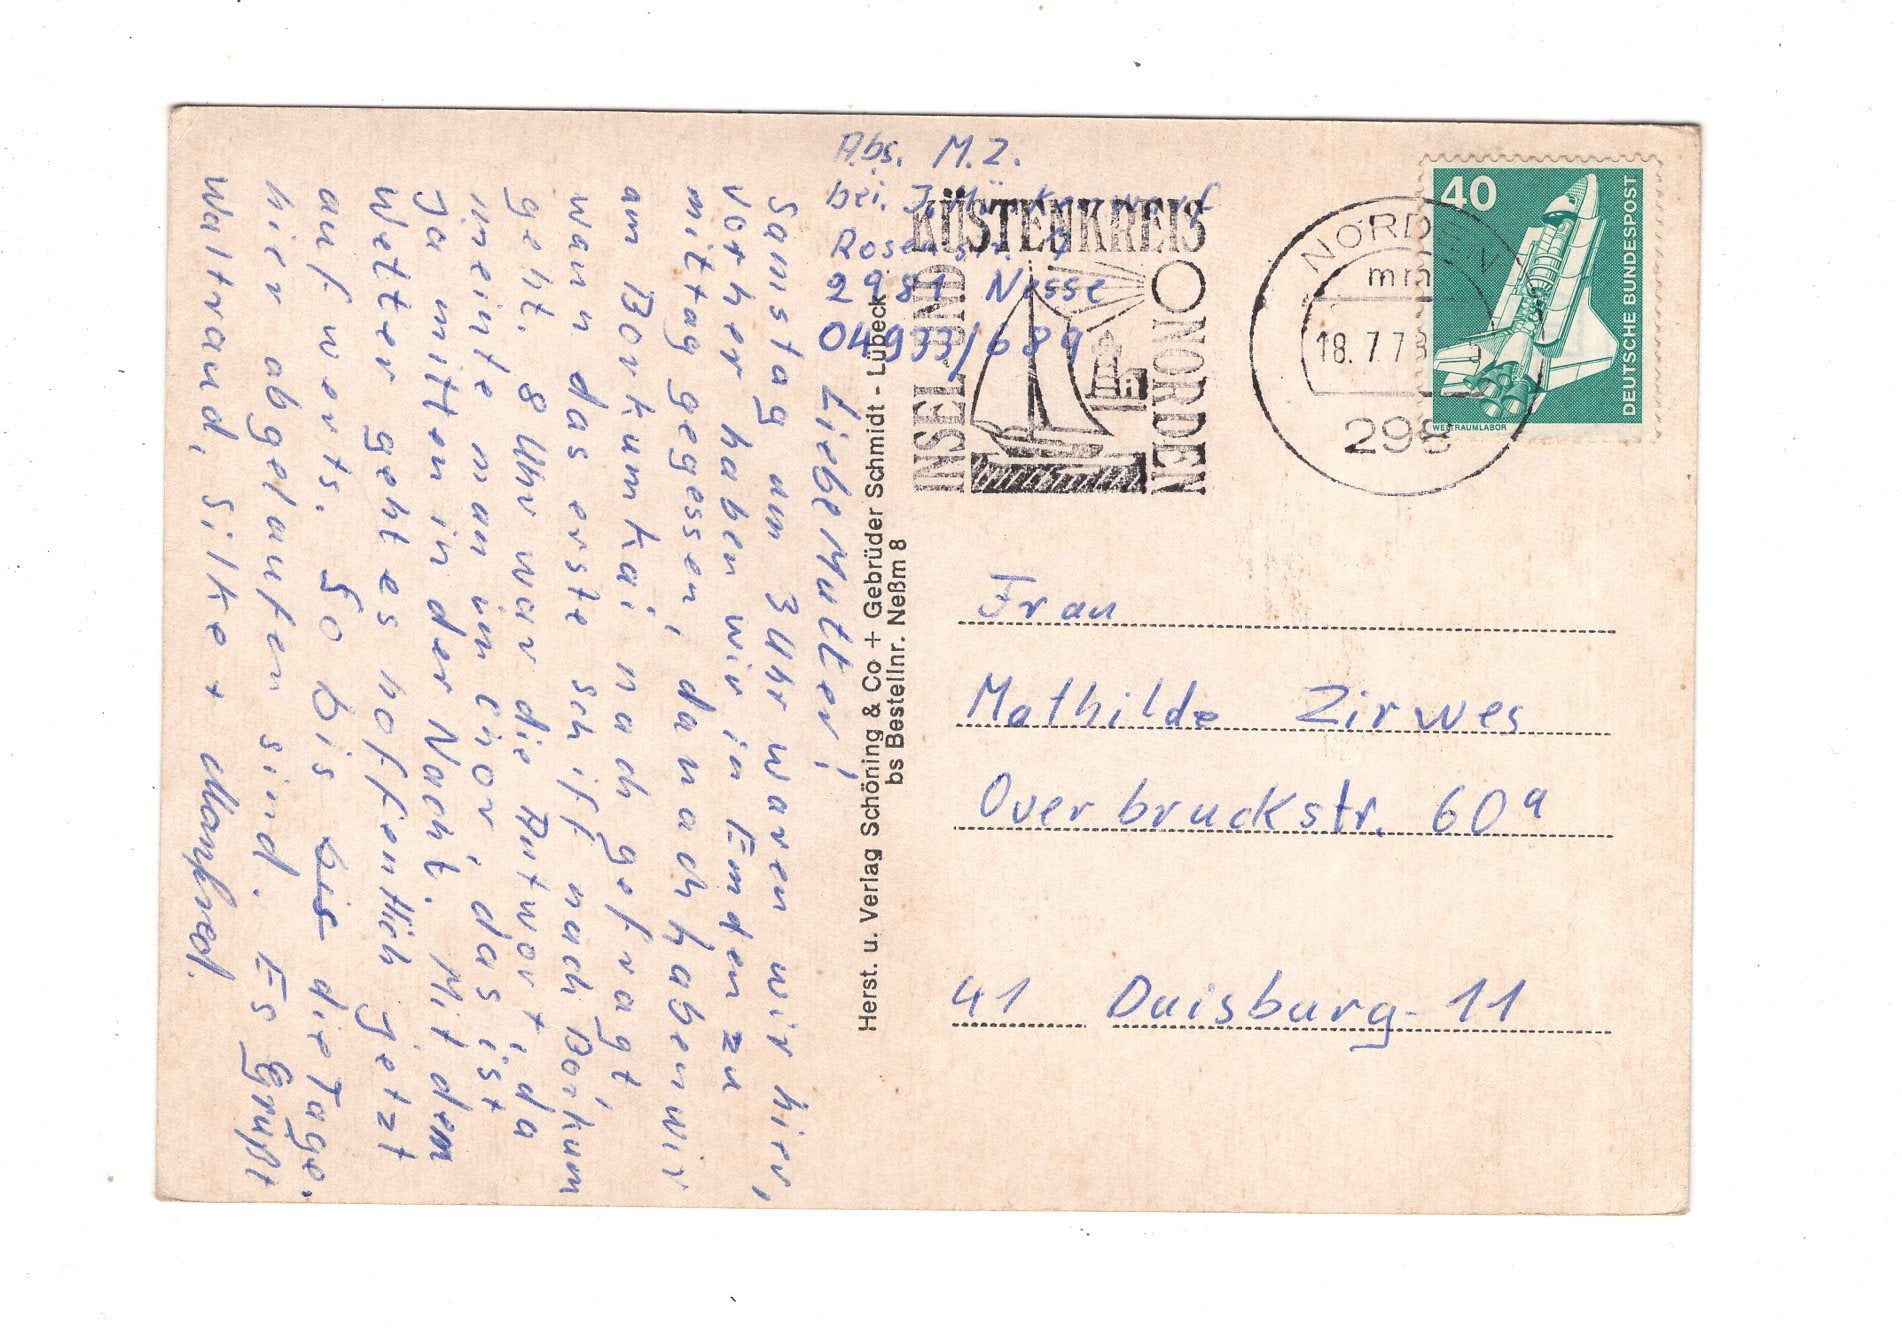 Abs. M.Z.
bei J.
Rosenstr.
2981 Nesse
04933/689
Liebe Mutter!
Samstag um 3 Uhr waren wir hier,
vorher haben wir in Emden zu
mittag gegessen, danach haben wir
am Borkumkai nach gefragt
wann das erste Schiff nach Borkum
geht. 8 Uhr war die Antwort, da
meinte man im Chor, das ist
ja mitten in der Nacht. Mit dem
Wetter geht es hoffentlich jetzt
aufwerts. So bis bis die Tage.
hier abgelaufen sind. Es Grüßt
Waltraud, Silke + Manfred.
Herst. u. Verlag Schöning & Co + Gebrüder Schmidt - Lübeck
bs Bestellnr. Neßm 8
INSEL UND
KÜSTENKREIS
NORDEN
NORDEN
mm
18.7.78
298
40
DEUTSCHE BUNDESPOST
WELTRAUMLABOR
Frau
Mathilde Zirwes
Overbruckstr. 60a
41 Duisburg-11